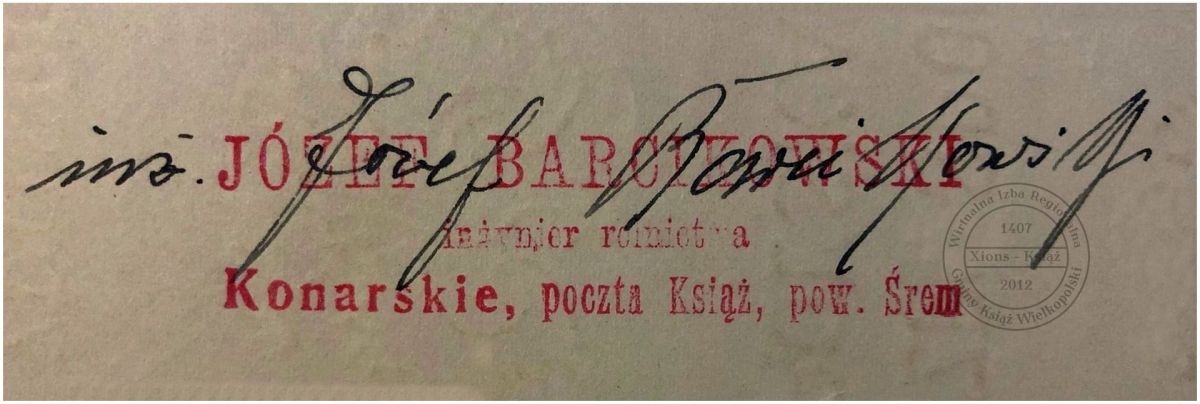 inż. Józef Barcikowski
JÓZEF BARCIKOWSKI
inżynjer rolnictwa
Konarskie, poczta Książ, pow. Śrem
Wirtualna Izba Regionalna
1407
Xions - Książ
2012
Gminy Książ Wielkopolski